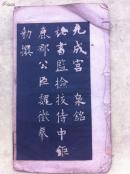 九成宮 泉銘
秘書監檢校侍中鉅
鹿郡公臣魏徵奉
勑撰